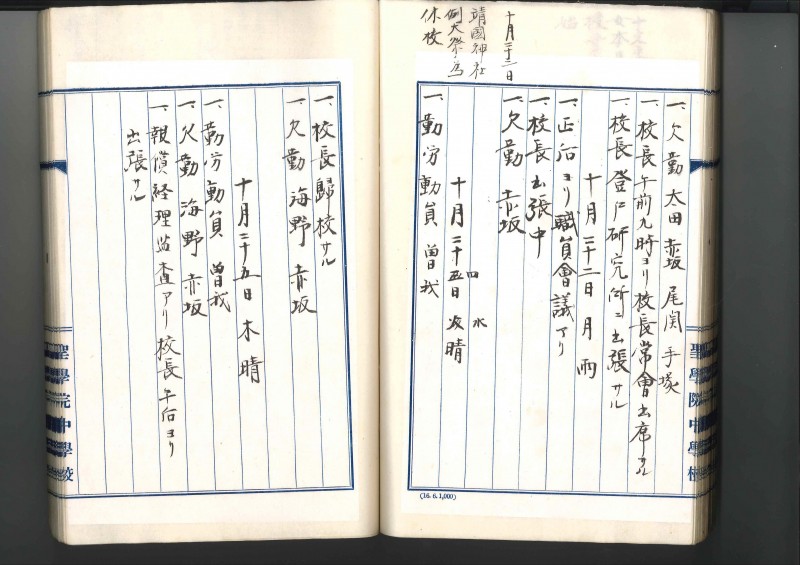 一、欠勤 太田 赤坂 尾関 手塚
一、校長午前九時ヨリ校長常會出席サル
一、校長登戸研究所ニ出張サル
十月二十二日 月 雨
一、正后ヨリ職員會議アリ
一、校長出張中
一、欠勤 赤坂
十月二十三日
靖國神社
例大祭ノ為
休校
十月二十四日 水 晴
一、勤労動員 曽我
(16. 6. 1,000)
聖學院中學校
一、校長歸校サル
一、欠勤 海野 赤坂
十月二十五日 木 晴
一、勤労動員 曽我
一、欠勤 海野 赤坂
一、報償経理監査アリ校長午后ヨリ
出張サル
聖學院中學校